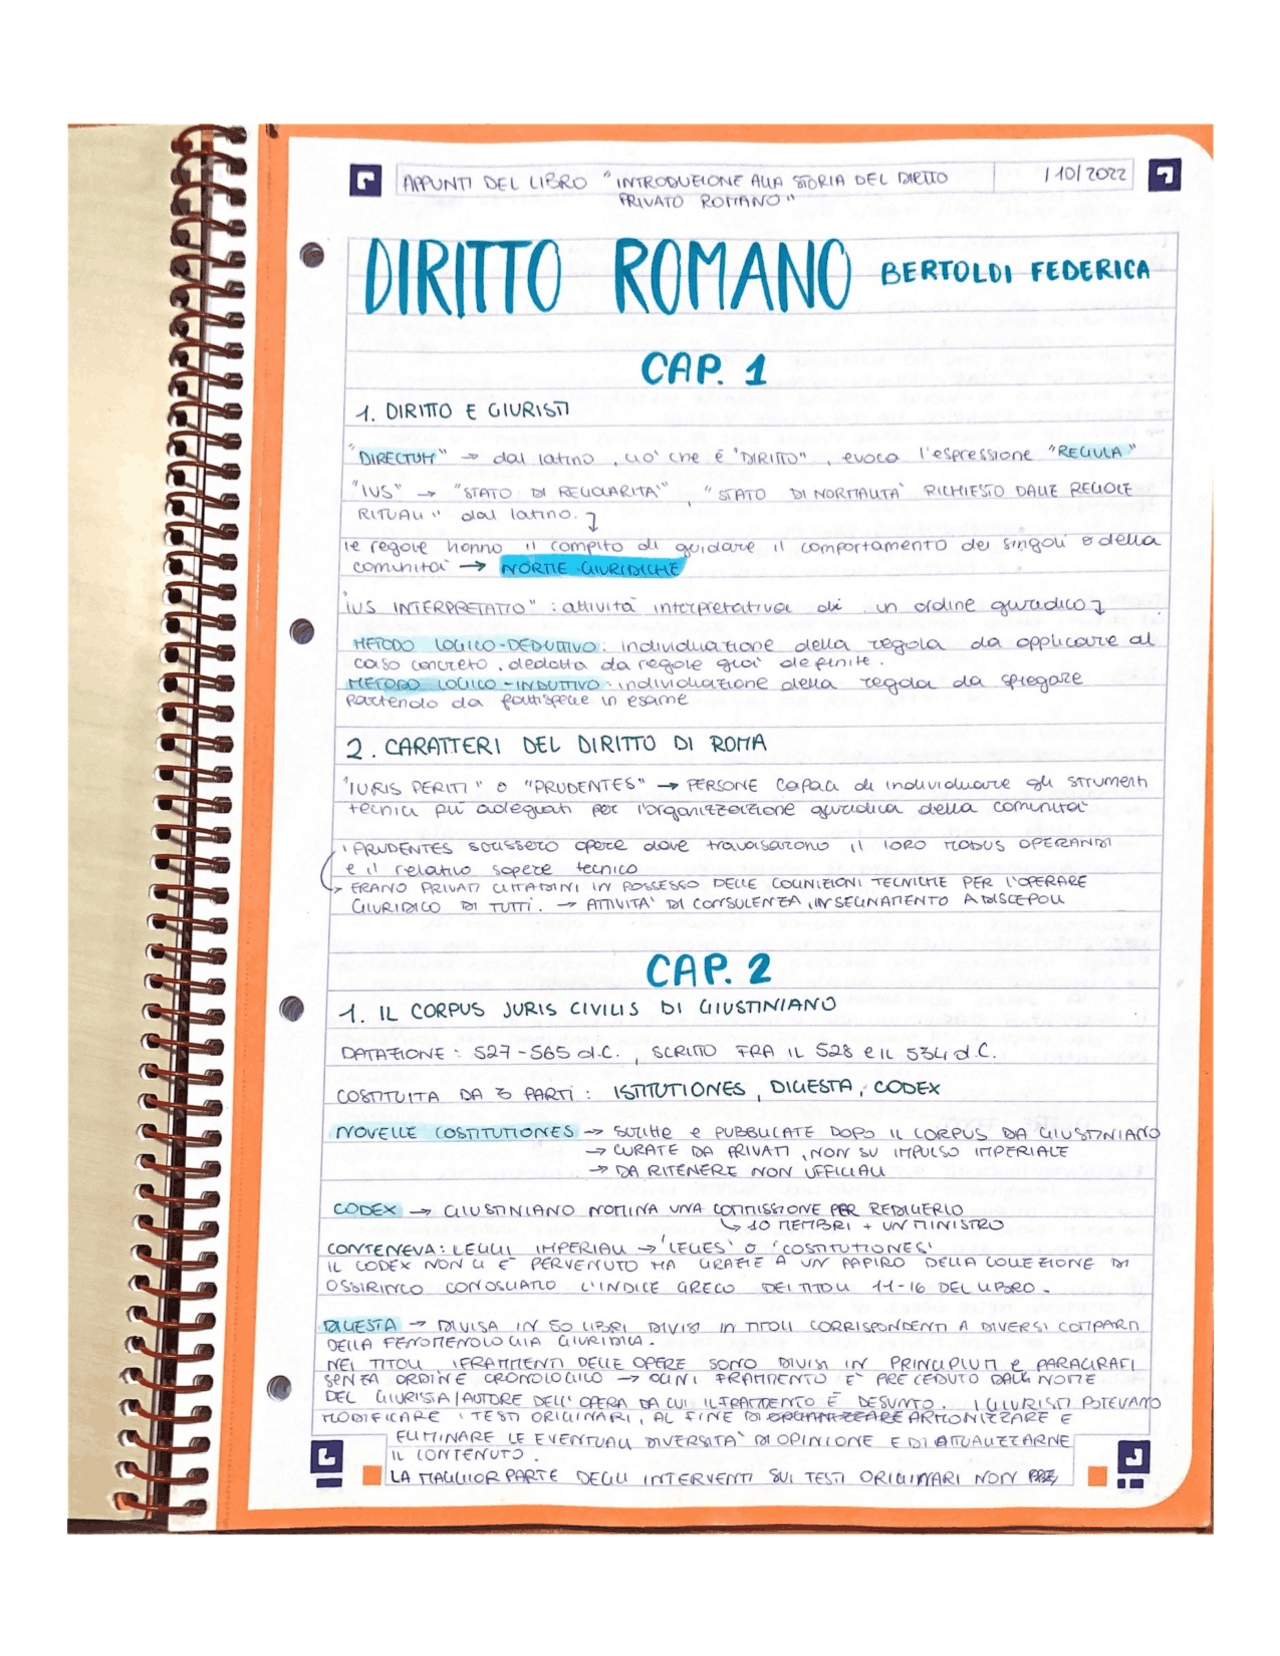 APPUNTI DEL LIBRO "INTRODUZIONE ALLA STORIA DEL DIRITTO
PRIVATO ROMANO"
/10/2022
DIRITTO ROMANO BERTOLDI FEDERICA
CAP. 1
1. DIRITTO E GIURISTI
"DIRECTUM" → dal latino, ciò che è "DIRITTO", evoca l'espressione "REGULA"
"IUS" → "STATO DI REGOLARITÀ", "STATO DI NORMALITÀ RICHIESTO DALLE REGOLE
RITUALI" dal latino.
le regole hanno il compito di guidare il comportamento dei singoli e della
comunità → NORME GIURIDICHE
"IUS INTERPRETATIO": attività interpretativa di un ordine giuridico
METODO LOGICO-DEDUTTIVO: individuazione della regola da applicare al
caso concreto, dedotta da regole già definite.
METODO LOGICO-INDUTTIVO: individuazione della regola da spiegare
partendo da fattispecie in esame
2. CARATTERI DEL DIRITTO DI ROMA
"IURIS PERITI" O "PRUDENTES" → PERSONE capaci di individuare gli strumenti
tecnici più adeguati per l'organizzazione giuridica della comunità
I PRUDENTES scrissero opere dove travasarono il loro MODUS OPERANDI
e il relativo sapere tecnico
→ ERANO PRIVATI CITTADINI IN POSSESSO DELLE COGNIZIONI TECNICHE PER L'OPERARE
GIURIDICO DI TUTTI. → ATTIVITA' DI CONSULENZA, INSEGNAMENTO A DISCEPOLI
CAP. 2
1. IL CORPUS JURIS CIVILIS DI GIUSTINIANO
DATAZIONE: 527-565 d.C., SCRITTO FRA IL 528 e IL 534 d.C.
COSTITUITA DA 3 PARTI: ISTITUTIONES, DIGESTA, CODEX
NOVELLE COSTITUTIONES → SCRITTE e PUBBLICATE DOPO IL CORPUS DA GIUSTINIANO
→ CURATE DA PRIVATI, NON SU IMPULSO IMPERIALE
→ DA RITENERE NON UFFICIALI
CODEX → GIUSTINIANO NOMINA UNA COMMISSIONE PER REDIGERLO
↳ 10 MEMBRI + UN MINISTRO
CONTENEVA: LEGGI IMPERIALI → 'LEGES' O 'COSTITUTIONES'
IL CODEX NON CI È PERVENUTO MA GRAZIE A UN PAPIRO DELLA COLLEZIONE DI
OSSIRINCO CONOSCIAMO L'INDICE GRECO DEI TITOLI 11-16 DEL LIBRO.
DIGESTA → DIVISA IN 50 LIBRI DIVISI IN TITOLI CORRISPONDENTI A DIVERSI COMPARTI
DELLA FENOMENOLOGIA GIURIDICA.
NEI TITOLI, I FRAMMENTI DELLE OPERE SONO DIVISI IN PRINCIPIUM e PARAGRAFI
SENZA ORDINE CRONOLOGICO → OGNI FRAMMENTO È PRECEDUTO DAL NOME
DEL GIURISTA/AUTORE DELL'OPERA DA CUI IL FRAMMENTO È DESUNTO. I GIURISTI POTEVANO
MODIFICARE I TESTI ORIGINARI, AL FINE DI ORGANIZZARE ARMONIZZARE E
ELIMINARE LE EVENTUALI DIVERSITA' DI OPINIONE E DI ATTUALIZZARNE
IL CONTENUTO.
LA MAGGIOR PARTE DEGLI INTERVENTI SUI TESTI ORIGINARI NON